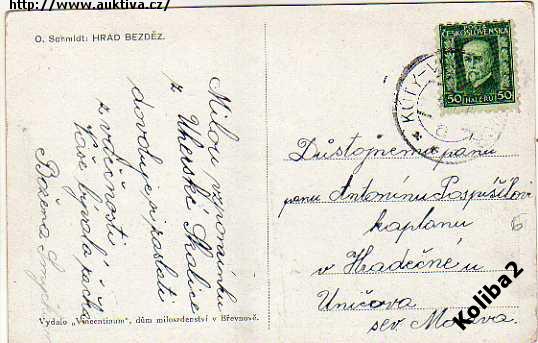 http://www.auktiva.cz/
O. Schmidt: HRAD BEZDĚZ.
Milou vzpomínku
z Uherské Skalice
dovoluje si zaslati
z vděčnosti
Vaše bývalá žačka
Božena
Vydalo „Vincentinum", dům milosrdenství v Břevnově.
ČESKOSLOVENSKA
50 HALÉŘŮ 50
KÚTY
Důstojnému pánu
panu Antonínu Pospíšilovi
kaplanu
v Hradečné u
Uničova
sev. Morava
Koliba2